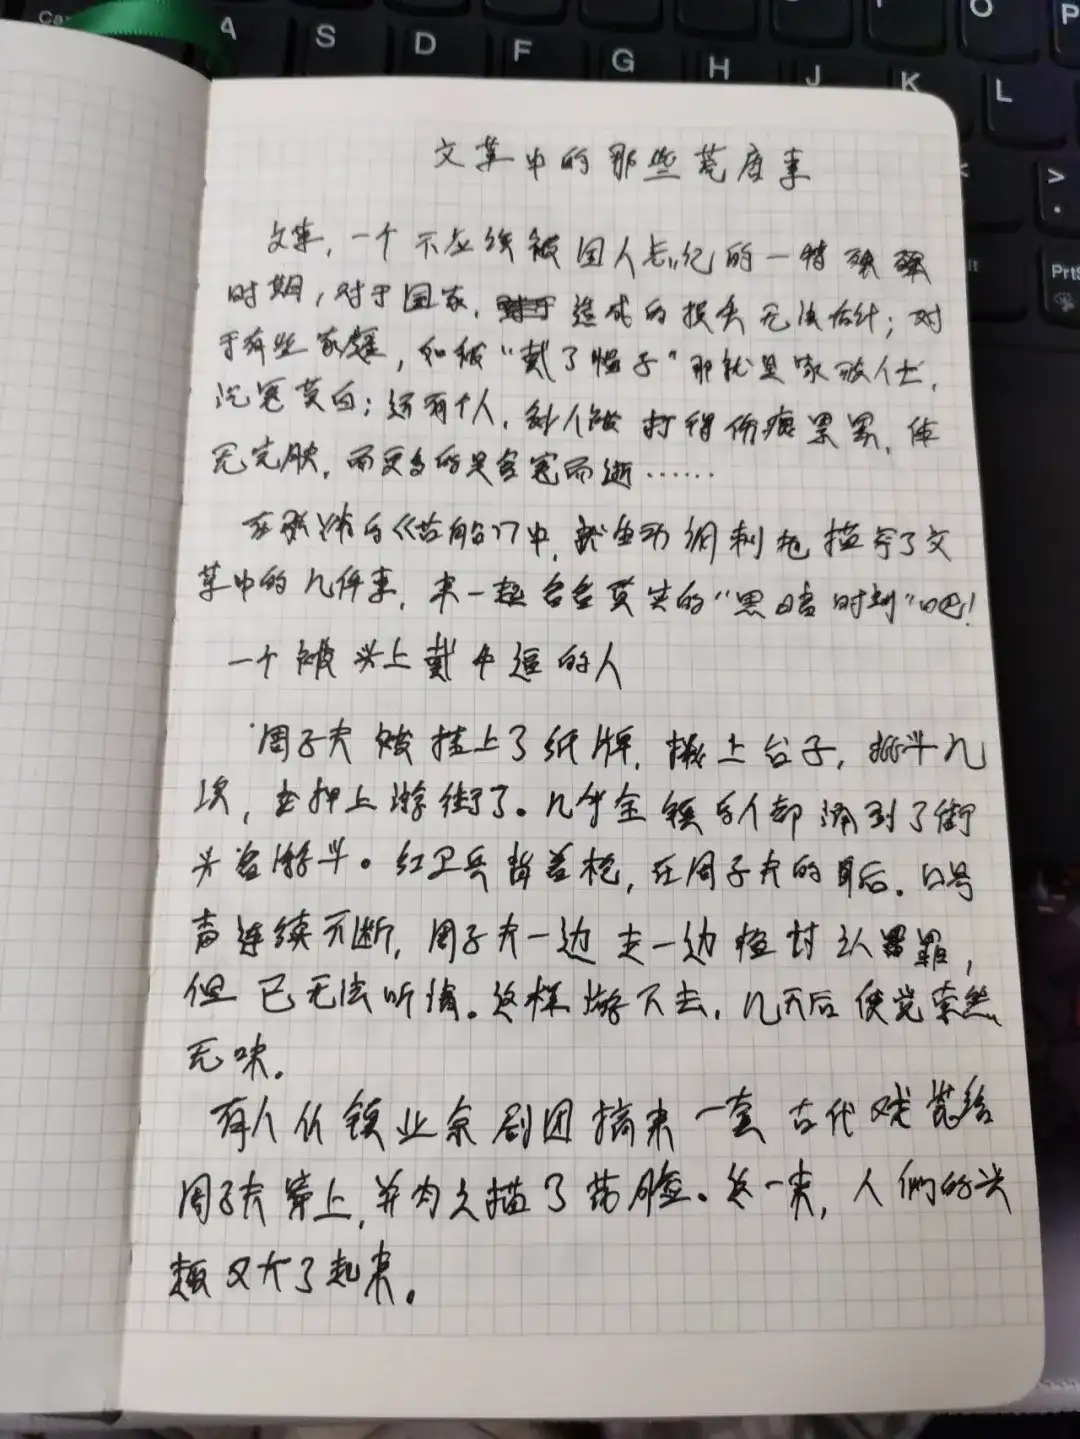 文革中的那些荒唐事
文革，一个不应该被国人忘记的一特殊
时期，对于国家，造成的损失无法估计；对
于有些家庭，如被“戴了帽子”那就是家破人亡，
沉冤莫白；还有个人，被打得伤痕累累，体
无完肤，而更多的是含冤而逝……
在张炜的《古船》中，就生动细刻地描写了文
革中的几件事，来一起看看真实的“黑暗时刻”吧！
一个被头上戴牛的人
周子夫被挂上了纸牌，揪上台子，批斗几
次，去押上游街了。几乎全镇的人都涌到了街
头看游斗。红卫兵背着枪，在周子夫的身后。口号
声连续不断，周子夫一边走一边检讨认罪，
但已无法听清。这样游下去，几天后便觉索然
无味。
有人从镇业余剧团搞来一套古代戏装给
周子夫穿上，并为之描了花脸。这一来，人们的兴
趣又大了起来。
A
S
D
F
G
H
J
K
L
O
P
PrtS